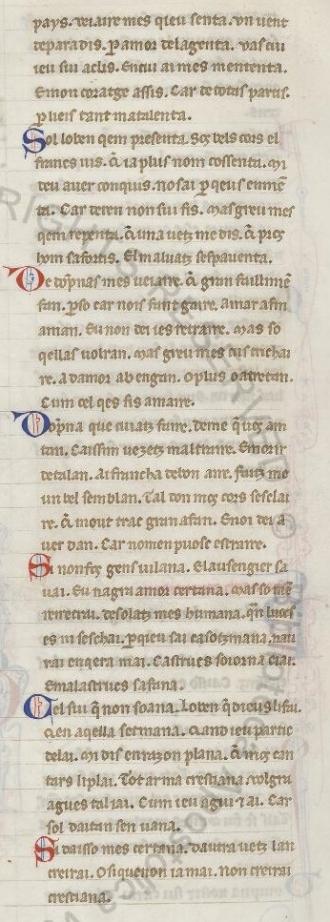 pays. veiaire mes qieu senta. vn uent
deparadis. Pamor delagenta. vas cui
ieu sui aclis. En cui ai mes mententa.
E mon coratge assis. Car de totas partis.
p lieis tant matalenta.
Sol lo ben qem presenta. Sos bels cors el
francs uis. Q̄ ia plus nom cossenta. Mi
deu auer conquis. no sai p qeus enmē
ta. Car de ren non sui fis. Mas greu mes
qem repenta. Q̄ una uetz me dis. Q̄ pros
hom safortis. El maluatz sespauenta.
De dōpnas mes ueiaire. Q̄ gran faillimē
fan. p so car nois funt gaire. Amar a fin
aman. Eu non dei ies retraire. Mas so
qellas uolran. Mas greu mes cus trichai
re. a damor ab engan. O plus o atretan.
Cum cel qes fis amaire.
Dōpna que cuiatz faire. De me q̄ uos am
tan. Caissim uezetz maltraire. E morir
de talan. Ai francha de bon aire. faitz me
un bel semblan. Tal don mos cors sesclai
re. Q̄ mout trac gran afan. E noi dei a
uer dan. Car nomen puosc estraire.
Si non fos gens uilana. E lausengier sa
uai. Eu nagra amor certana. Mas so mē
retrai. de solatz mes humana. qn luocs
es ni seschai. p qieu sai ca sotzmana. nau
rai enqera mai. Castrucs soiorna e iai.
E malastrucs safana.
Cel sui q̄ non soana. Lo ben q̄ dieus li fai.
Q̄ en aqella setmana. Q̄ and ieu partic
de lai. Mi dis en razon plana. Q̄ mos can
tars li plai. Tot arma crestiana. uolgra
agues tal iai. Cum ieu agui et ai. Car
sol daitan sen uana.
Si daisso mes certana. dautra uetz lan
creirai. O si que non ia mai. non creirai
crestiana.